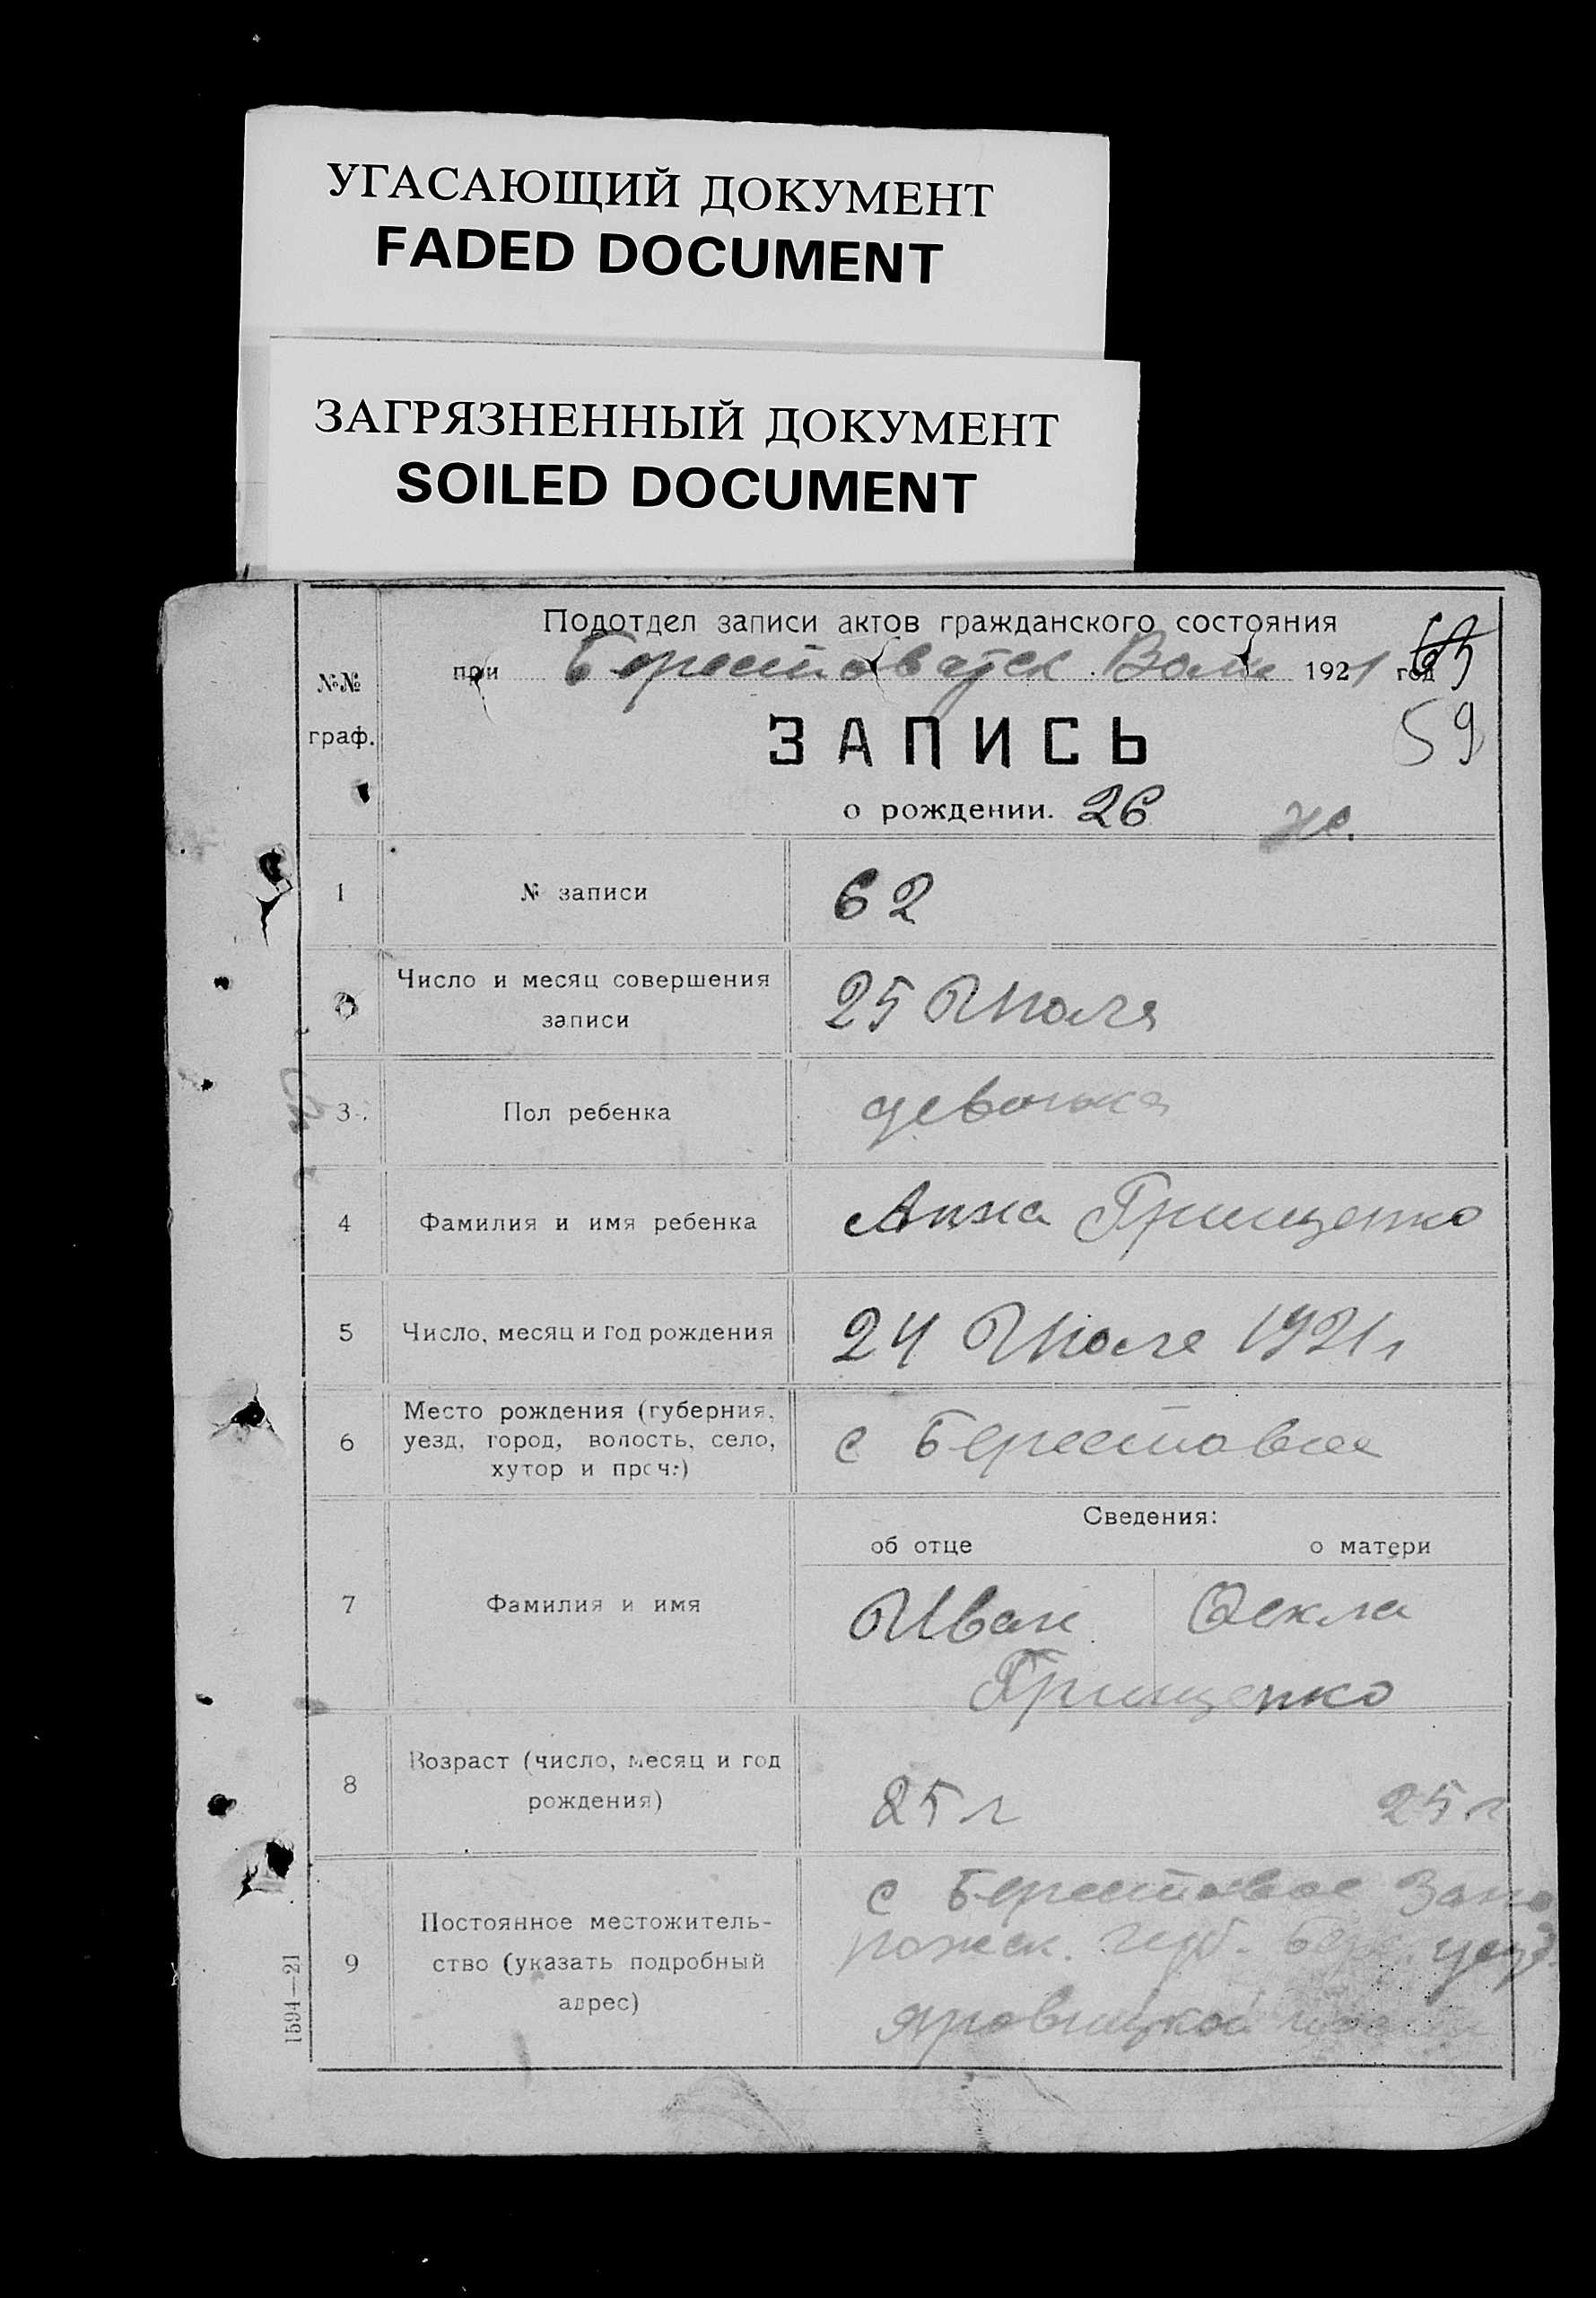 УГАСАЮЩИЙ ДОКУМЕНТ
FADED DOCUMENT
ЗАГРЯЗНЕННЫЙ ДОКУМЕНТ
SOILED DOCUMENT
Подотдел записи актов гражданского состояния
при Берестоватск Вол 1921 год
59
№№ граф.
ЗАПИСЬ
о рождении. 26 ж.
1 № записи 62
Число и месяц совершения
записи
25 Июля
3 Пол ребенка девочка
4 Фамилия и имя ребенка Анна Грищенко
5 Число, месяц и год рождения 24 Июля 1921 г
Место рождения (губерния,
6 уезд, город, волость, село,
хутор и проч.)
с Берестовое
Сведения:
об отце о матери
7 Фамилия и имя Иван Фекла
Грищенко
Возраст (число, месяц и год
8 рождения)
25 г 25 г
Постоянное местожитель-
9 ство (указать подробный
адрес)
с Берестовое Запо
рожск. губ. уезд.
1594—21